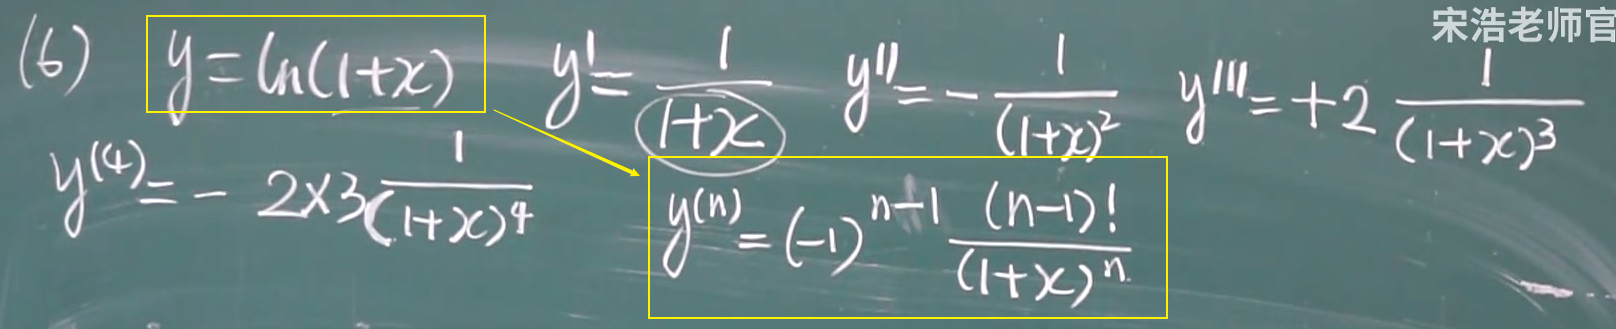 宋浩老师官
(6) y=ln(1+x) y'=1/(1+x) y''=-1/(1+x)² y'''=+2 1/(1+x)³
y⁽⁴⁾=-2×3 1/(1+x)⁴ y⁽ⁿ⁾=(-1)ⁿ⁻¹ (n-1)!/(1+x)ⁿ